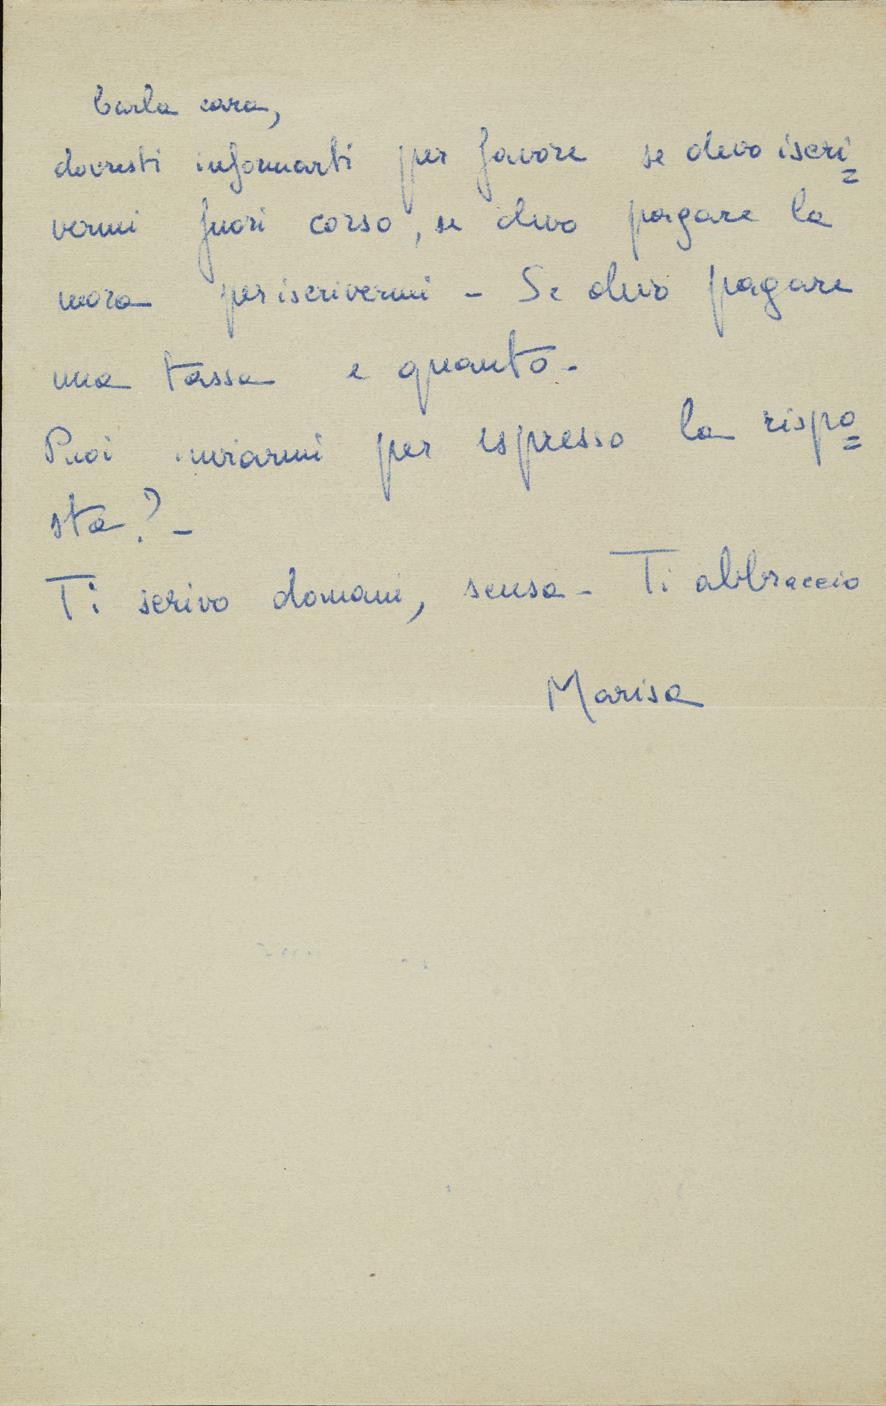 Carla cara,
dovresti informarti per favore se devo iscri=
vermi fuori corso, se devo pagare la
mora per iscrivermi - Se devo pagare
una tassa e quanto -
Puoi inviarmi per espresso la rispo=
sta? -
Ti scrivo domani, scusa - Ti abbraccio
Marisa